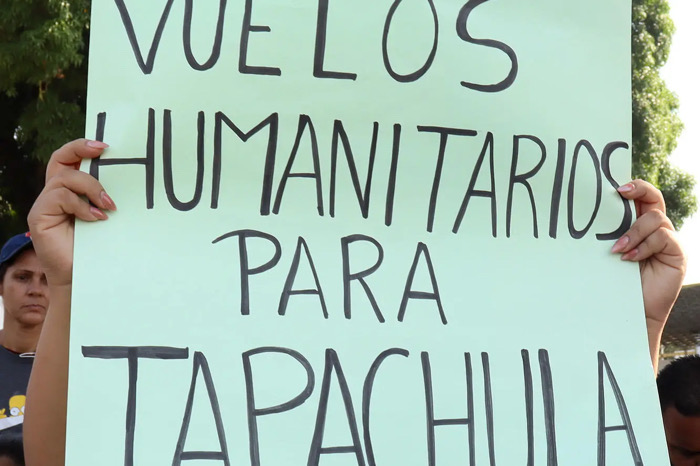 VUELOS
HUMANITARIOS
PARA
TAPACHULA